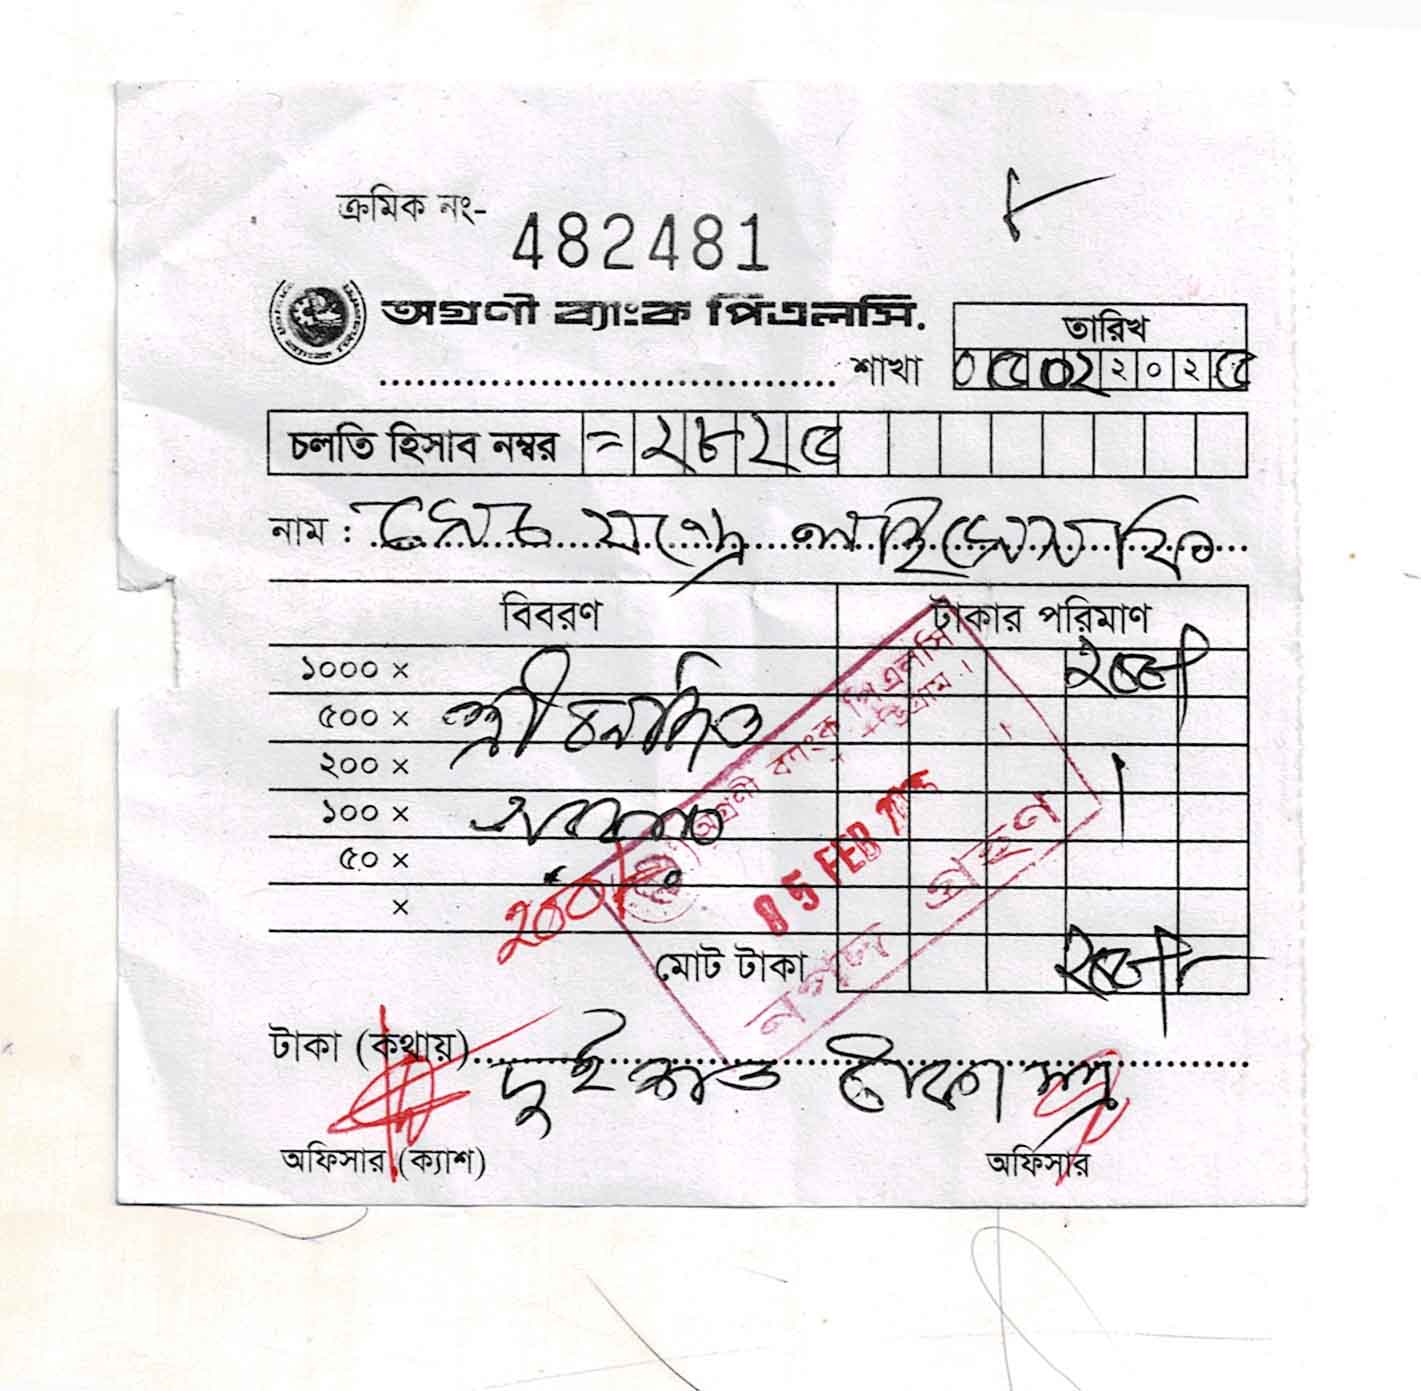 ক্রমিক নং- 482481
অগ্রণী ব্যাংক পিএলসি.
শাখা
তারিখ
০৫ ০২ ২০২৫
চলতি হিসাব নম্বর = ২৮২৫
নাম :
বিবরণ টাকার পরিমাণ
১০০০ × ২০০/
৫০০ ×
২০০ ×
১০০ ×
৫০ ×
×
২০০/
মোট টাকা ২০০/-
অগ্রণী ব্যাংক পিএলসি
05 FEB
নগদ গ্রহণ
টাকা (কথায়) দুই শত টাকা মাত্র
অফিসার (ক্যাশ) অফিসার